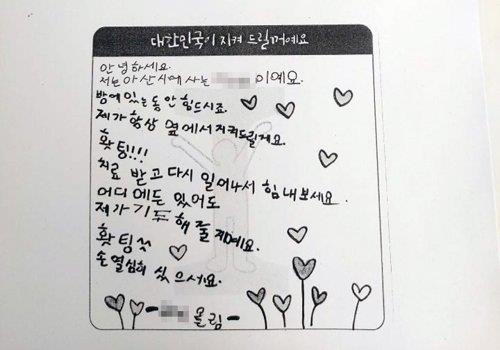 대한민국이 지켜 드릴꺼예요
안녕하세요.
저는 아산시에 사는 이예요.
방에 있는동안 힘드시죠.
제가 항상 옆에서 지켜드릴게요.
홧팅!!!
치료 받고 다시 일어나서 힘내보세요.
어디에든 있어도
제가 기도해 줄게예요.
홧팅
손 열심히 씻으세요.
- 올림 -